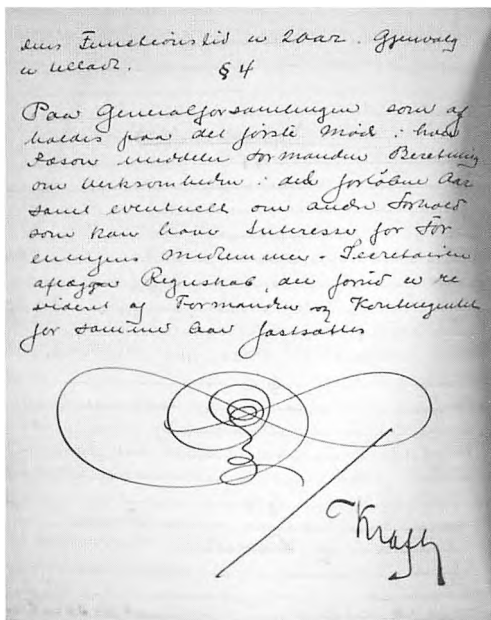 dens Functionstid er 2 aar. Gjenvalg
er tilladt.
§ 4
Paa Generalforsamlingen som af
holdes paa det første Møde i hver
Sæson meddeler Formanden Beretning
om Virksomheden i det forløbne Aar
samt eventuelt om andre Forhold
som kan have Interesse for For
eningens Medlemmer. Secretairen
aflægger Regnskab, der forud er re
videret af Formanden og Kontingentet
for samme Aar fastsættes
Kraft